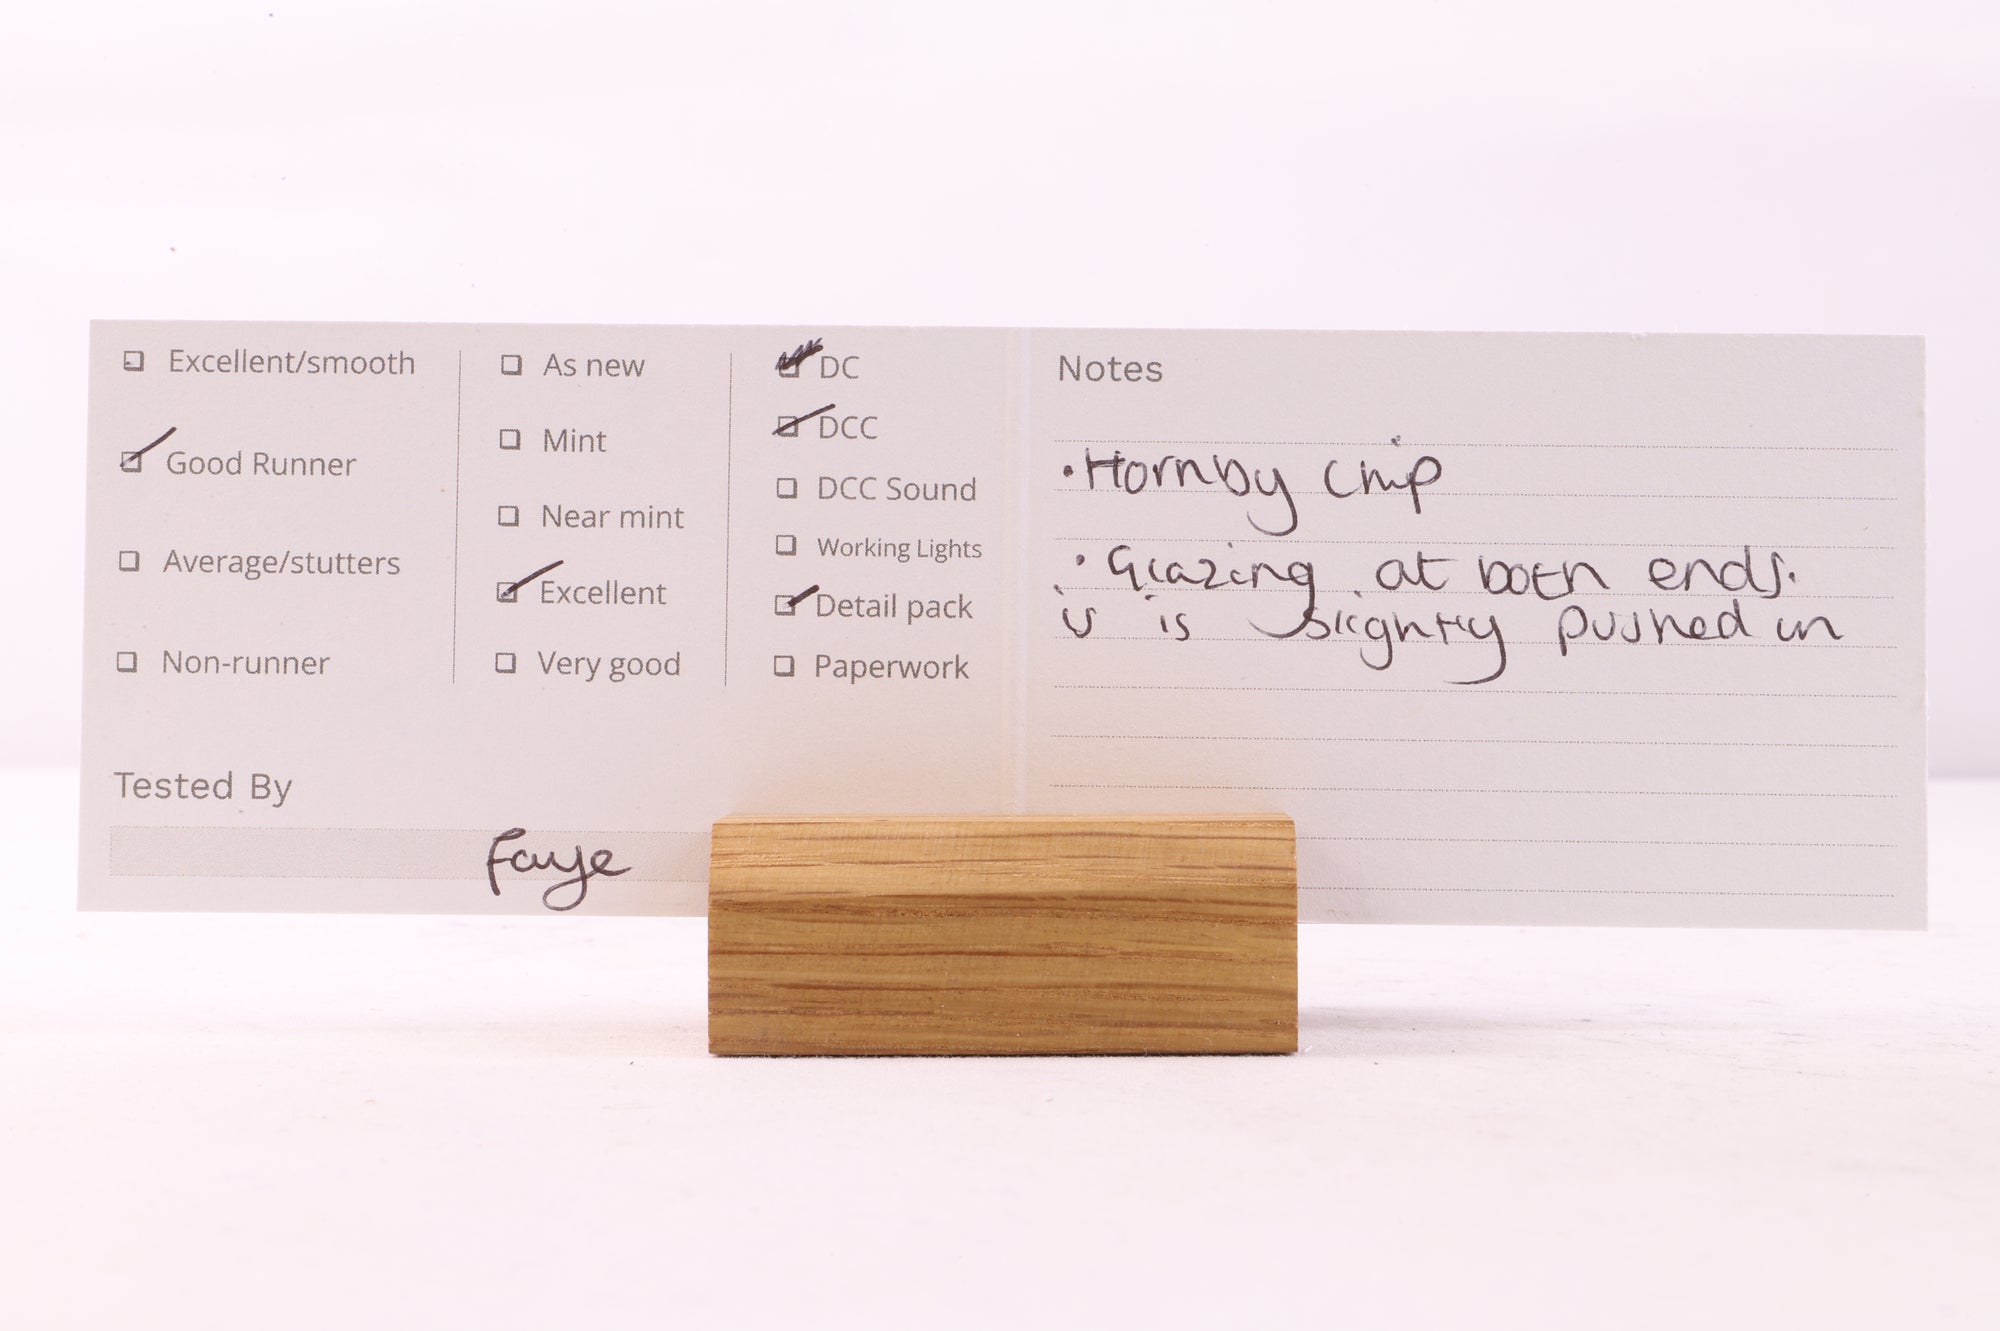 Excellent/smooth
Good Runner
Average/stutters
Non-runner
As new
Mint
Near mint
Excellent
Very good
DC
DCC
DCC Sound
Working Lights
Detail pack
Paperwork
Tested By
Faye
Notes
• Hornby Chip
• Glazing at both ends.
is slightly pushed in